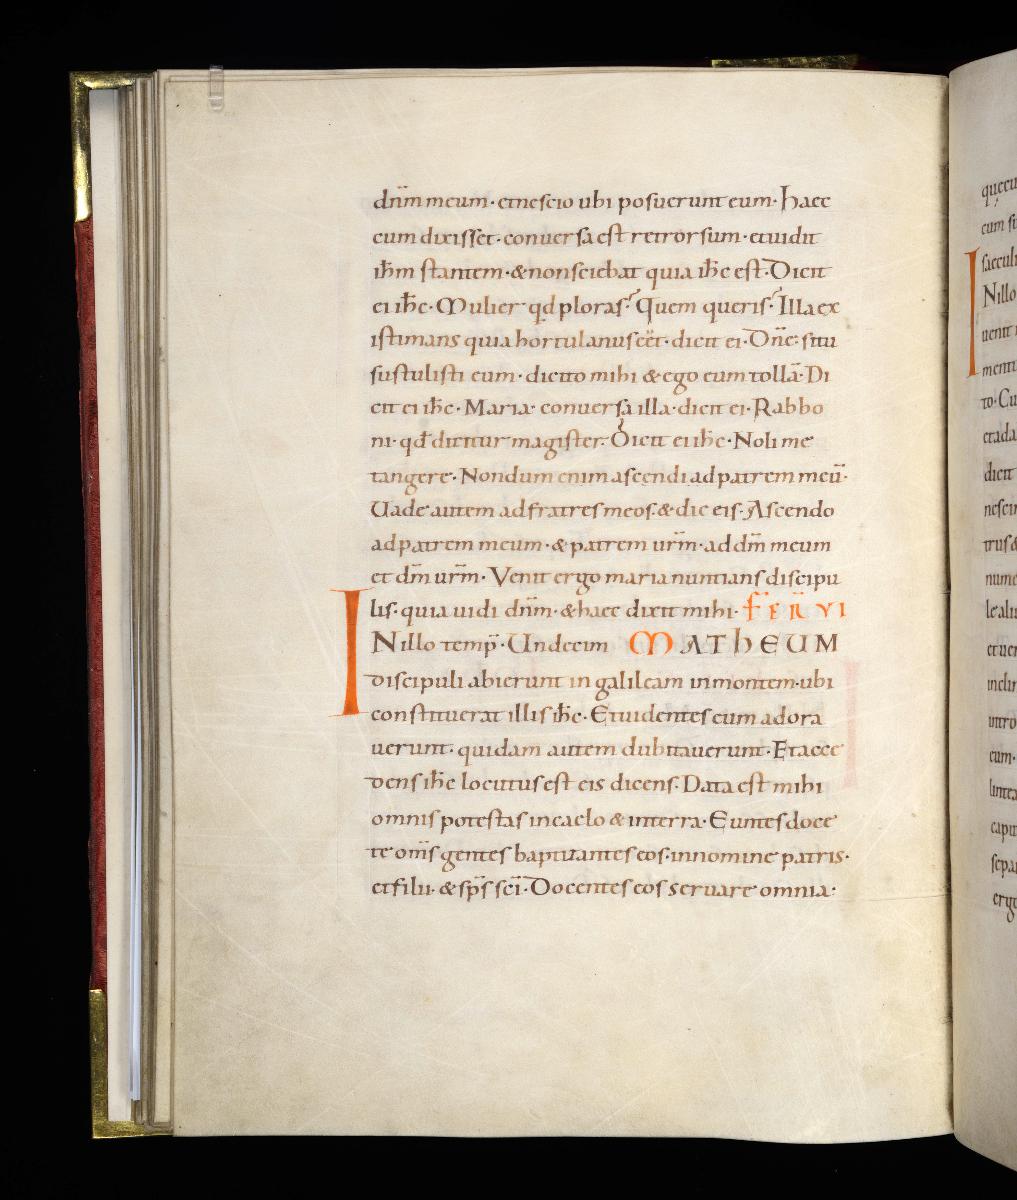 dn̄m meum · et nescio ubi posuerunt eum · Haec
cum dixisset · conuersa est retrorsum · et uidit
ih̄m stantem · & non sciebat quia ih̄c est · Dicit
ei ih̄c · Mulier qd ploras · Quem queris · Illa ex
istimans quia hortulanus eēt · dicit ei · Dn̄e · si tu
sustulisti eum · dicito mihi & ego eum tollā · Di
cit ei ih̄c · Maria · conuersa illa · dicit ei · Rabbo
ni · qđ dicitur magister · Dicit ei ih̄c · Noli me
tangere · Nondum enim ascendi ad patrem meū ·
Uade autem ad fratres meos · & dic eis · Ascendo
ad patrem meum · & patrem ur̄m · ad dm̄ meum
et dm̄ ur̄m · Venit ergo maria nuntians discipu
lis · quia uidi dn̄m · & haec dixit mihi · FER̄ VI
IN illo temp̄ · Undecim MATHEUM
discipuli abierunt in galileam in montem · ubi
constituerat illis ih̄c · Et uidentes eum adora
uerunt · quidam autem dubitauerunt · Et acce
dens ih̄c locutus est eis dicens · Data est mihi
omnis potestas in caelo & in terra · Euntes doce
te om̄s gentes baptizantes eos · in nomine patris ·
et filii · & sp̄s sc̄i · Docentes eos seruare omnia ·